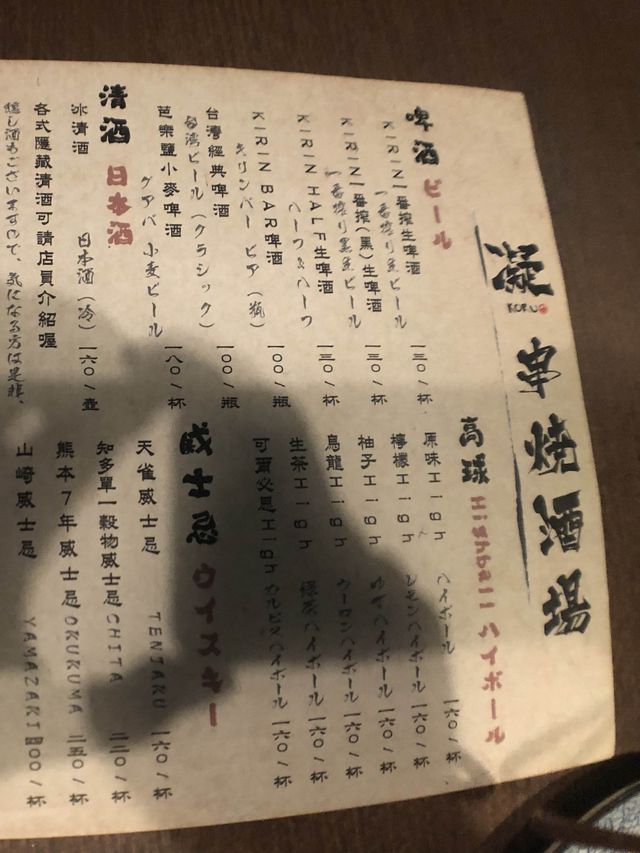 凝
KORU
串燒酒場
啤酒 ビール
KIRIN一番搾生啤酒 一三〇/杯
一番搾り生ビール
KIRIN一番搾(黑)生啤酒 一三〇/杯
一番搾り黒生ビール
KIRIN HALF生啤酒 一三〇/杯
ハーフ&ハーフ
KIRIN BAR啤酒 一〇〇/瓶
キリンバー ビア(瓶)
台灣經典啤酒 一〇〇/瓶
台湾ビール(クラシック)
芭樂鹽小麥啤酒 一八〇/杯
グアバ 小麦ビール
清酒 日本酒
冰清酒 日本酒(冷) 一六〇/壺
各式隱藏清酒可請店員介紹喔
隠し酒もございますので、気になる方は是非、
高球 Highball ハイボール
原味High ハイボール 一六〇/杯
檸檬High レモンハイボール 一六〇/杯
柚子High ゆずハイボール 一六〇/杯
烏龍High ウーロンハイボール 一六〇/杯
生茶High 緑茶ハイボール 一六〇/杯
可爾必思High カルピスハイボール 一六〇/杯
威士忌 ウイスキー
天雀威士忌 TENJAKU 一六〇/杯
知多單一穀物威士忌 CHITA 二二〇/杯
熊本7年威士忌 OKURUMA 二五〇/杯
山崎威士忌 YAMAZAKI 四〇〇/杯